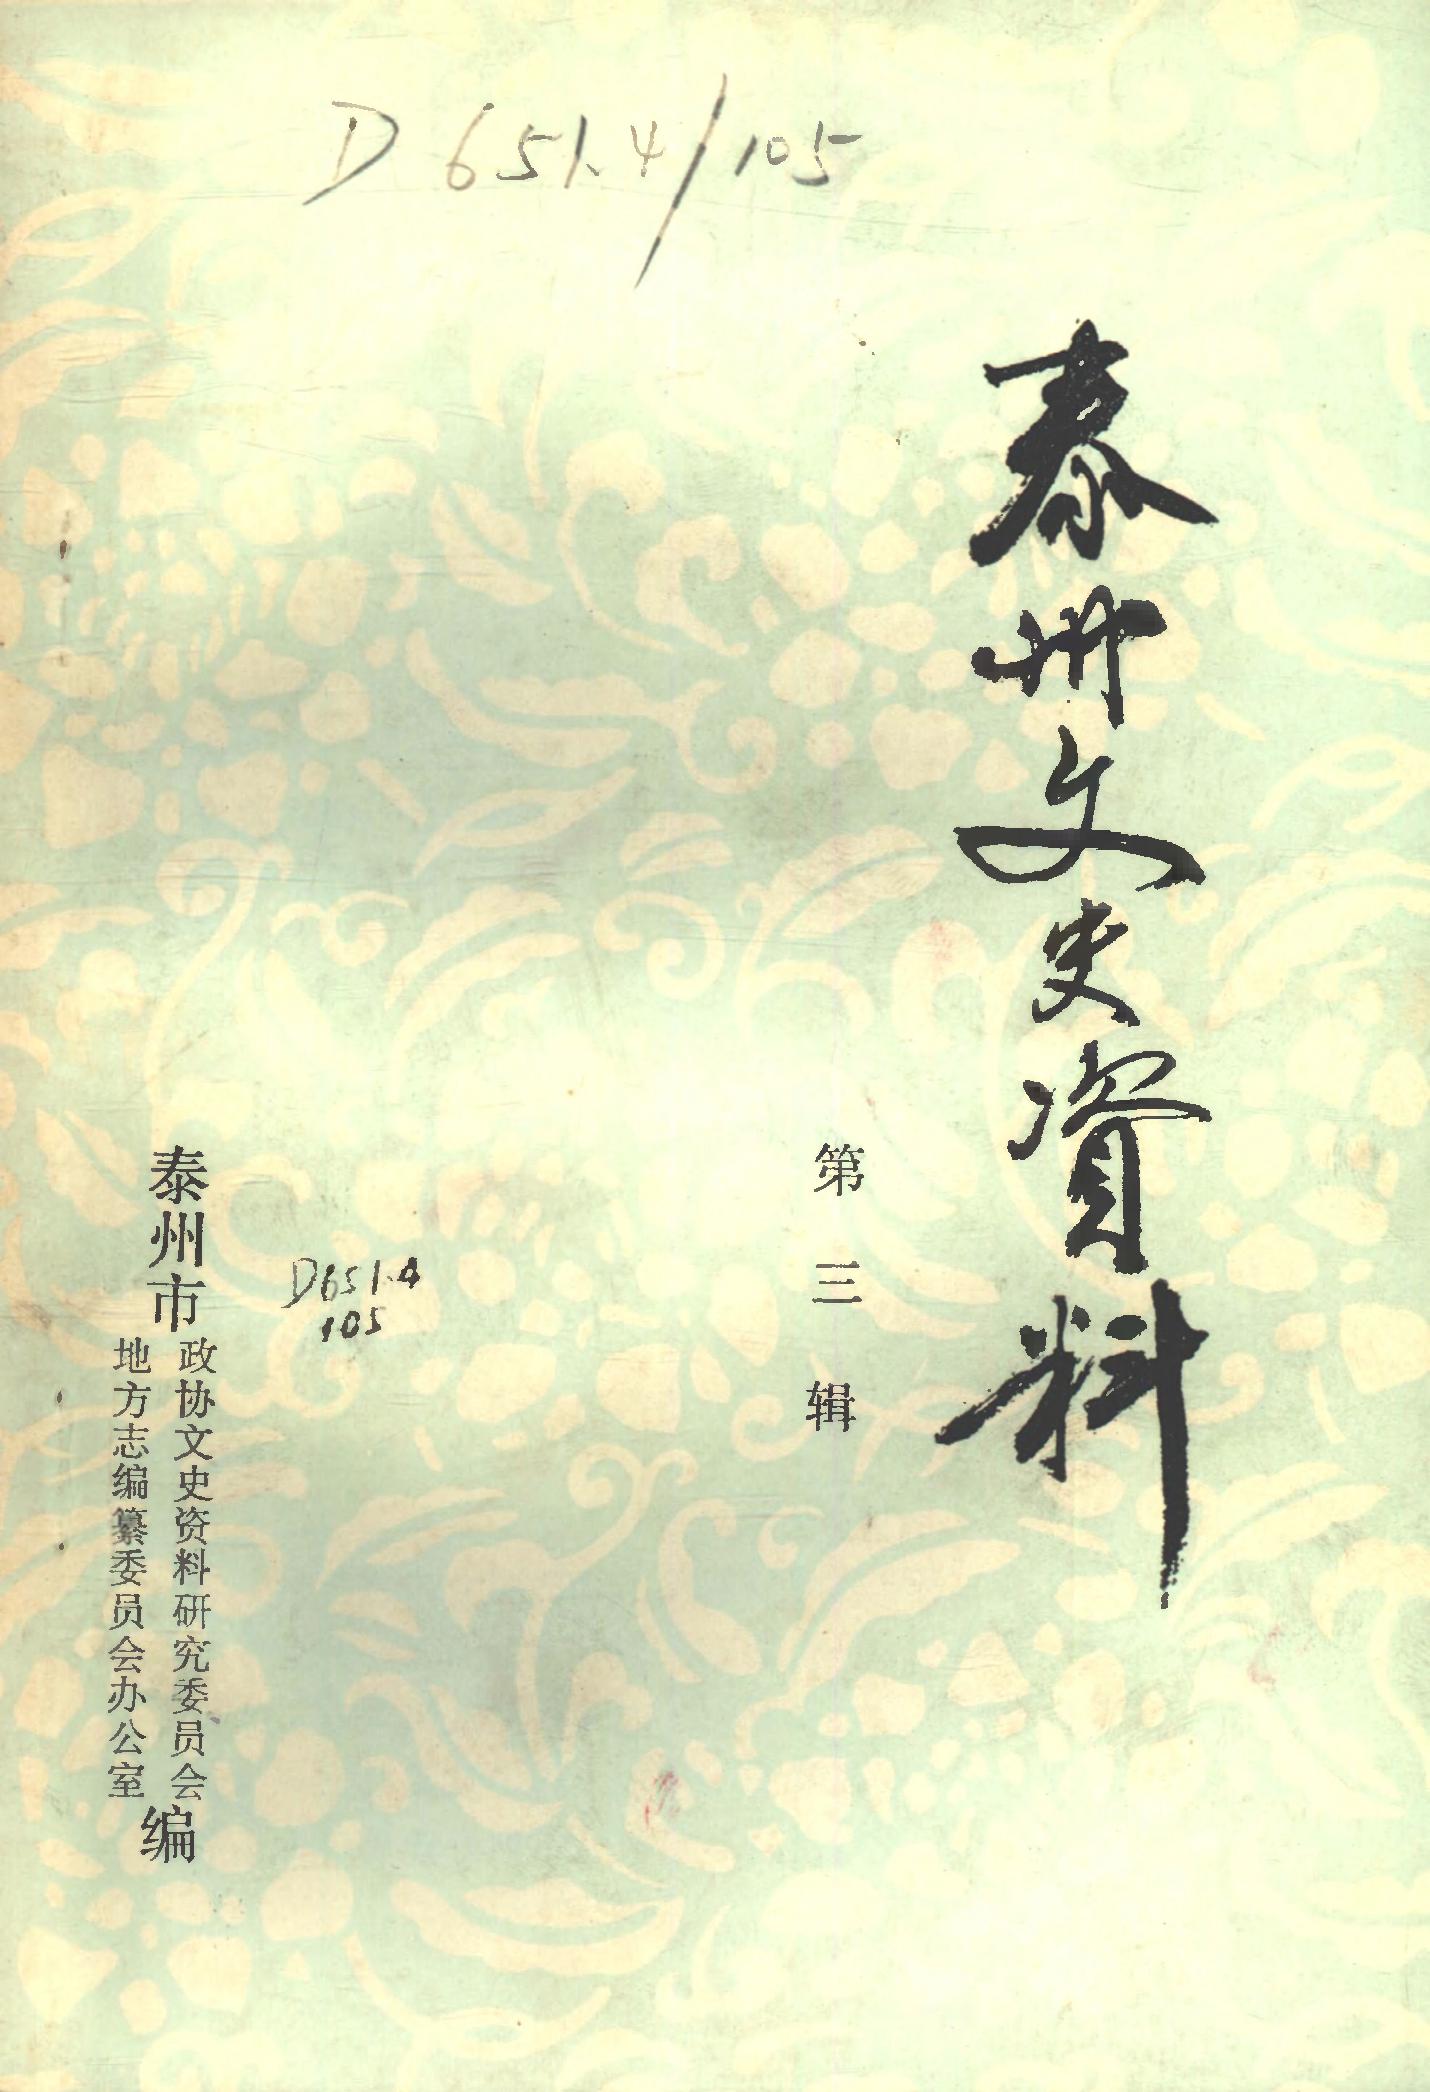 D 651.4/105
泰州文史資料
第三辑
D651.4
105
泰州市
政协文史资料研究委员会
地方志编纂委员会办公室
编